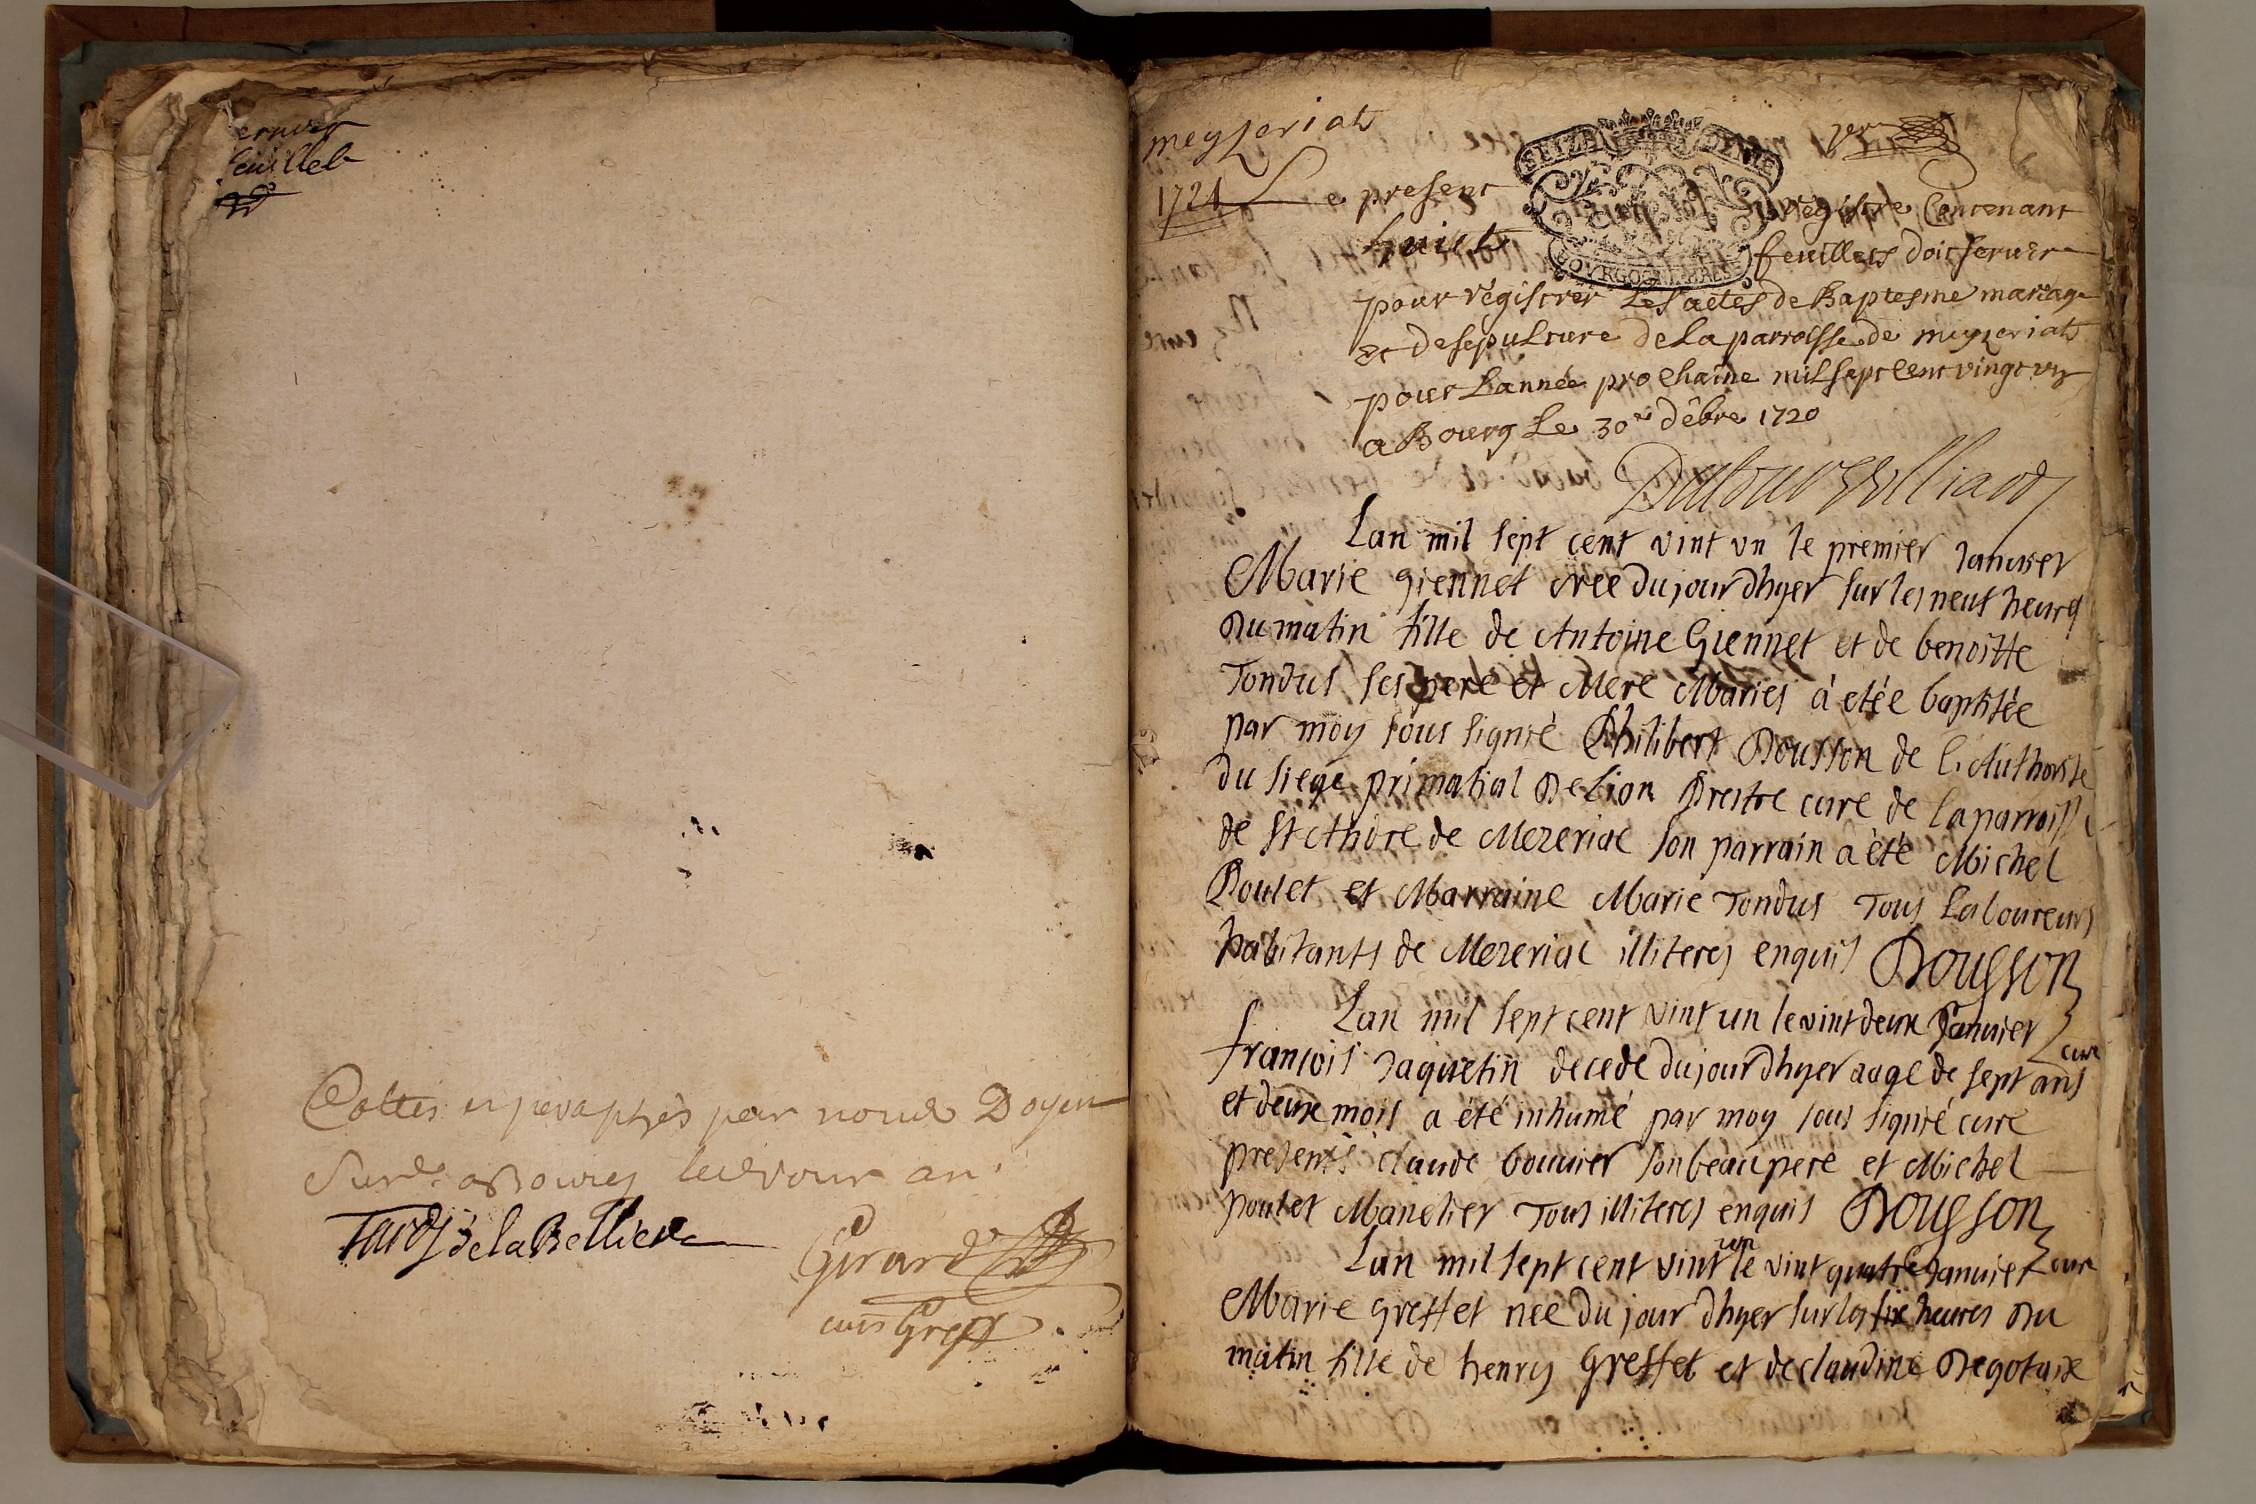 feuillet
Cottés et paraphés par nous Doyen
a Bourg led. jour an
de la Bettiere
Girard
meyzeriat
1721 Le present registre Contenant
huict feuillets doit servir
pour régistrer Les actes de Baptesme mariage
et de sepulture de La parroisse de meyzeriat
pour Lannée prochaine mil sept Cent vingt un
a Bourg Le 30e débre 1720
Lan mil sept cent vint un le premier Janvier
Marie Giennet nee du jour dhyer sur les neuf heures
du matin fille de Antoine Giennet et de benoitte
Tondus ses pere et Mere Mariés à etée baptisée
par moy sous signié Philibert Dousson de l'Authorité
du siege primatial De Lion Prestre curé de la parroisse
de St Andre de Mezeriac son parrain a été Michel
Poulet et Marraine Marie Tondus Tous Laboureurs
habitants de Mezeriac illiteres enquis Dousson
curé
Lan mil sept cent vint un le vint deux Janvier
françois Jaquetin decede du jour dhyer aagé de sept ans
et deux mois a été inhumé par moy sous signié curé
presents claude bouvier son beau pere et Michel
poulet Manelier Tous illiteres enquis Dousson
curé
Lan mil sept cent vint un le vint quatre Janvier
Marie Greffet neé du jour dhyer sur les six heures du
matin fille de henry Greffet et de claudine Degotaix